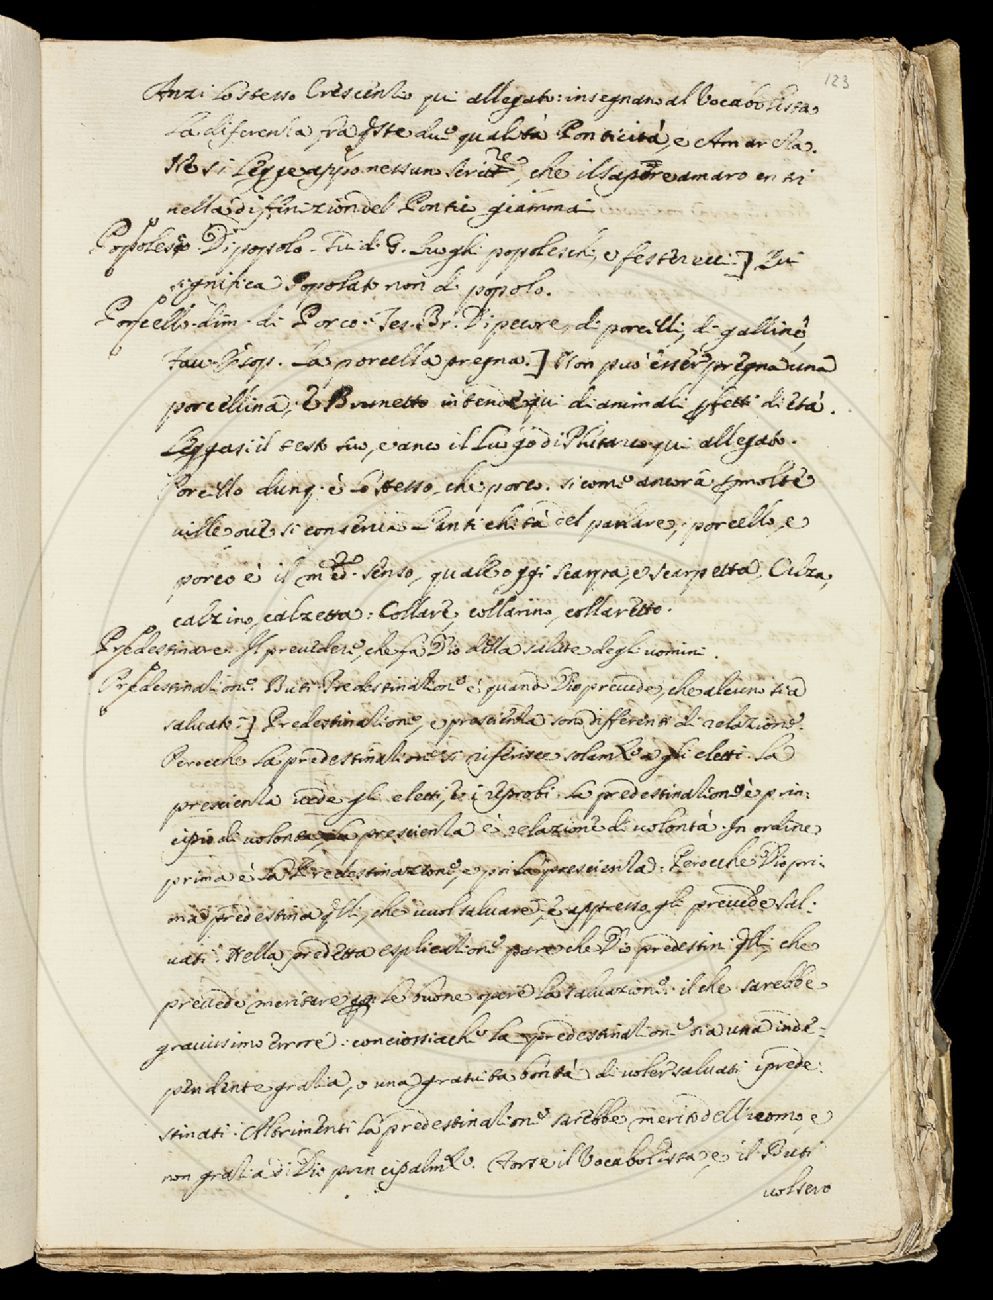 123
Anzi lo stesso Crescentio qui allegato: insegnano al Vocabolista
la diferenza fra qste due qualità Ponticità, e Amarezza.
Nè si legge appo nessun scrittre, che il sapore amaro entri
nella diffinizion del Pontic giammai
Popolesco. Di popolo. Fui di G. Luoghi popoleschi, e festerecci.] Qui
significa Popolato non di popolo.
Porcello. dim. di Porco. Tes. Br. Di pecore, di porcelli, di galline,
Fav. Esop. La porcella pregna.] Non può esser pregna una
porcellina; e Brunetto intende qui di animali pfetti di età.
Leggasi il testo suo, e anco il luogo di Plutarco qui allegato.
Porcello dunq. è lo stesso, che porco. sicome ancora p molte
ville ove si conserva l'antichità del parlare, porcello, e
porco è il med. senso, quale oggi scarpa, e scarpetta, Calza,
calzino, calzetta: Collare, collarino, collaretto.
Predestinare. Il prevedere, che fa Dio della salute degli uomini.
Predestinatione. Buti Predestinatione è quando Dio prevede, che alcuno sia
salvato.] Predestinatione, e prescienta son differenti di relazione.
Perocche la predestinatione si riferisce solamte a gli eletti. La
prescienta vede gli eletti, e i reprobi. La predestinatione è prin:
cipio di volontà prescienta è relazione di volontà. In ordine
prima è la Predestinazione, e poi la prescienta: Perocche Dio pri:
ma predestina qlli, che vuol salvare, e appresso gli prevede sal:
vati. Nella predetta esplicatione pare che Dio predestini qlli, che
prevede meritare p le buone opere la salvazione: il che sarebbe
gravissimo errore: conciossiache la predestinatione sia una inde:
pendente gratia, o una gratuita bontà di voler salvati i prede:
stinati. Altrimenti la predestinatione sarebbe merito dell'uomo, e
non gratia di Dio principalmte. Forse il Vocabolista, e il Buti
volsero